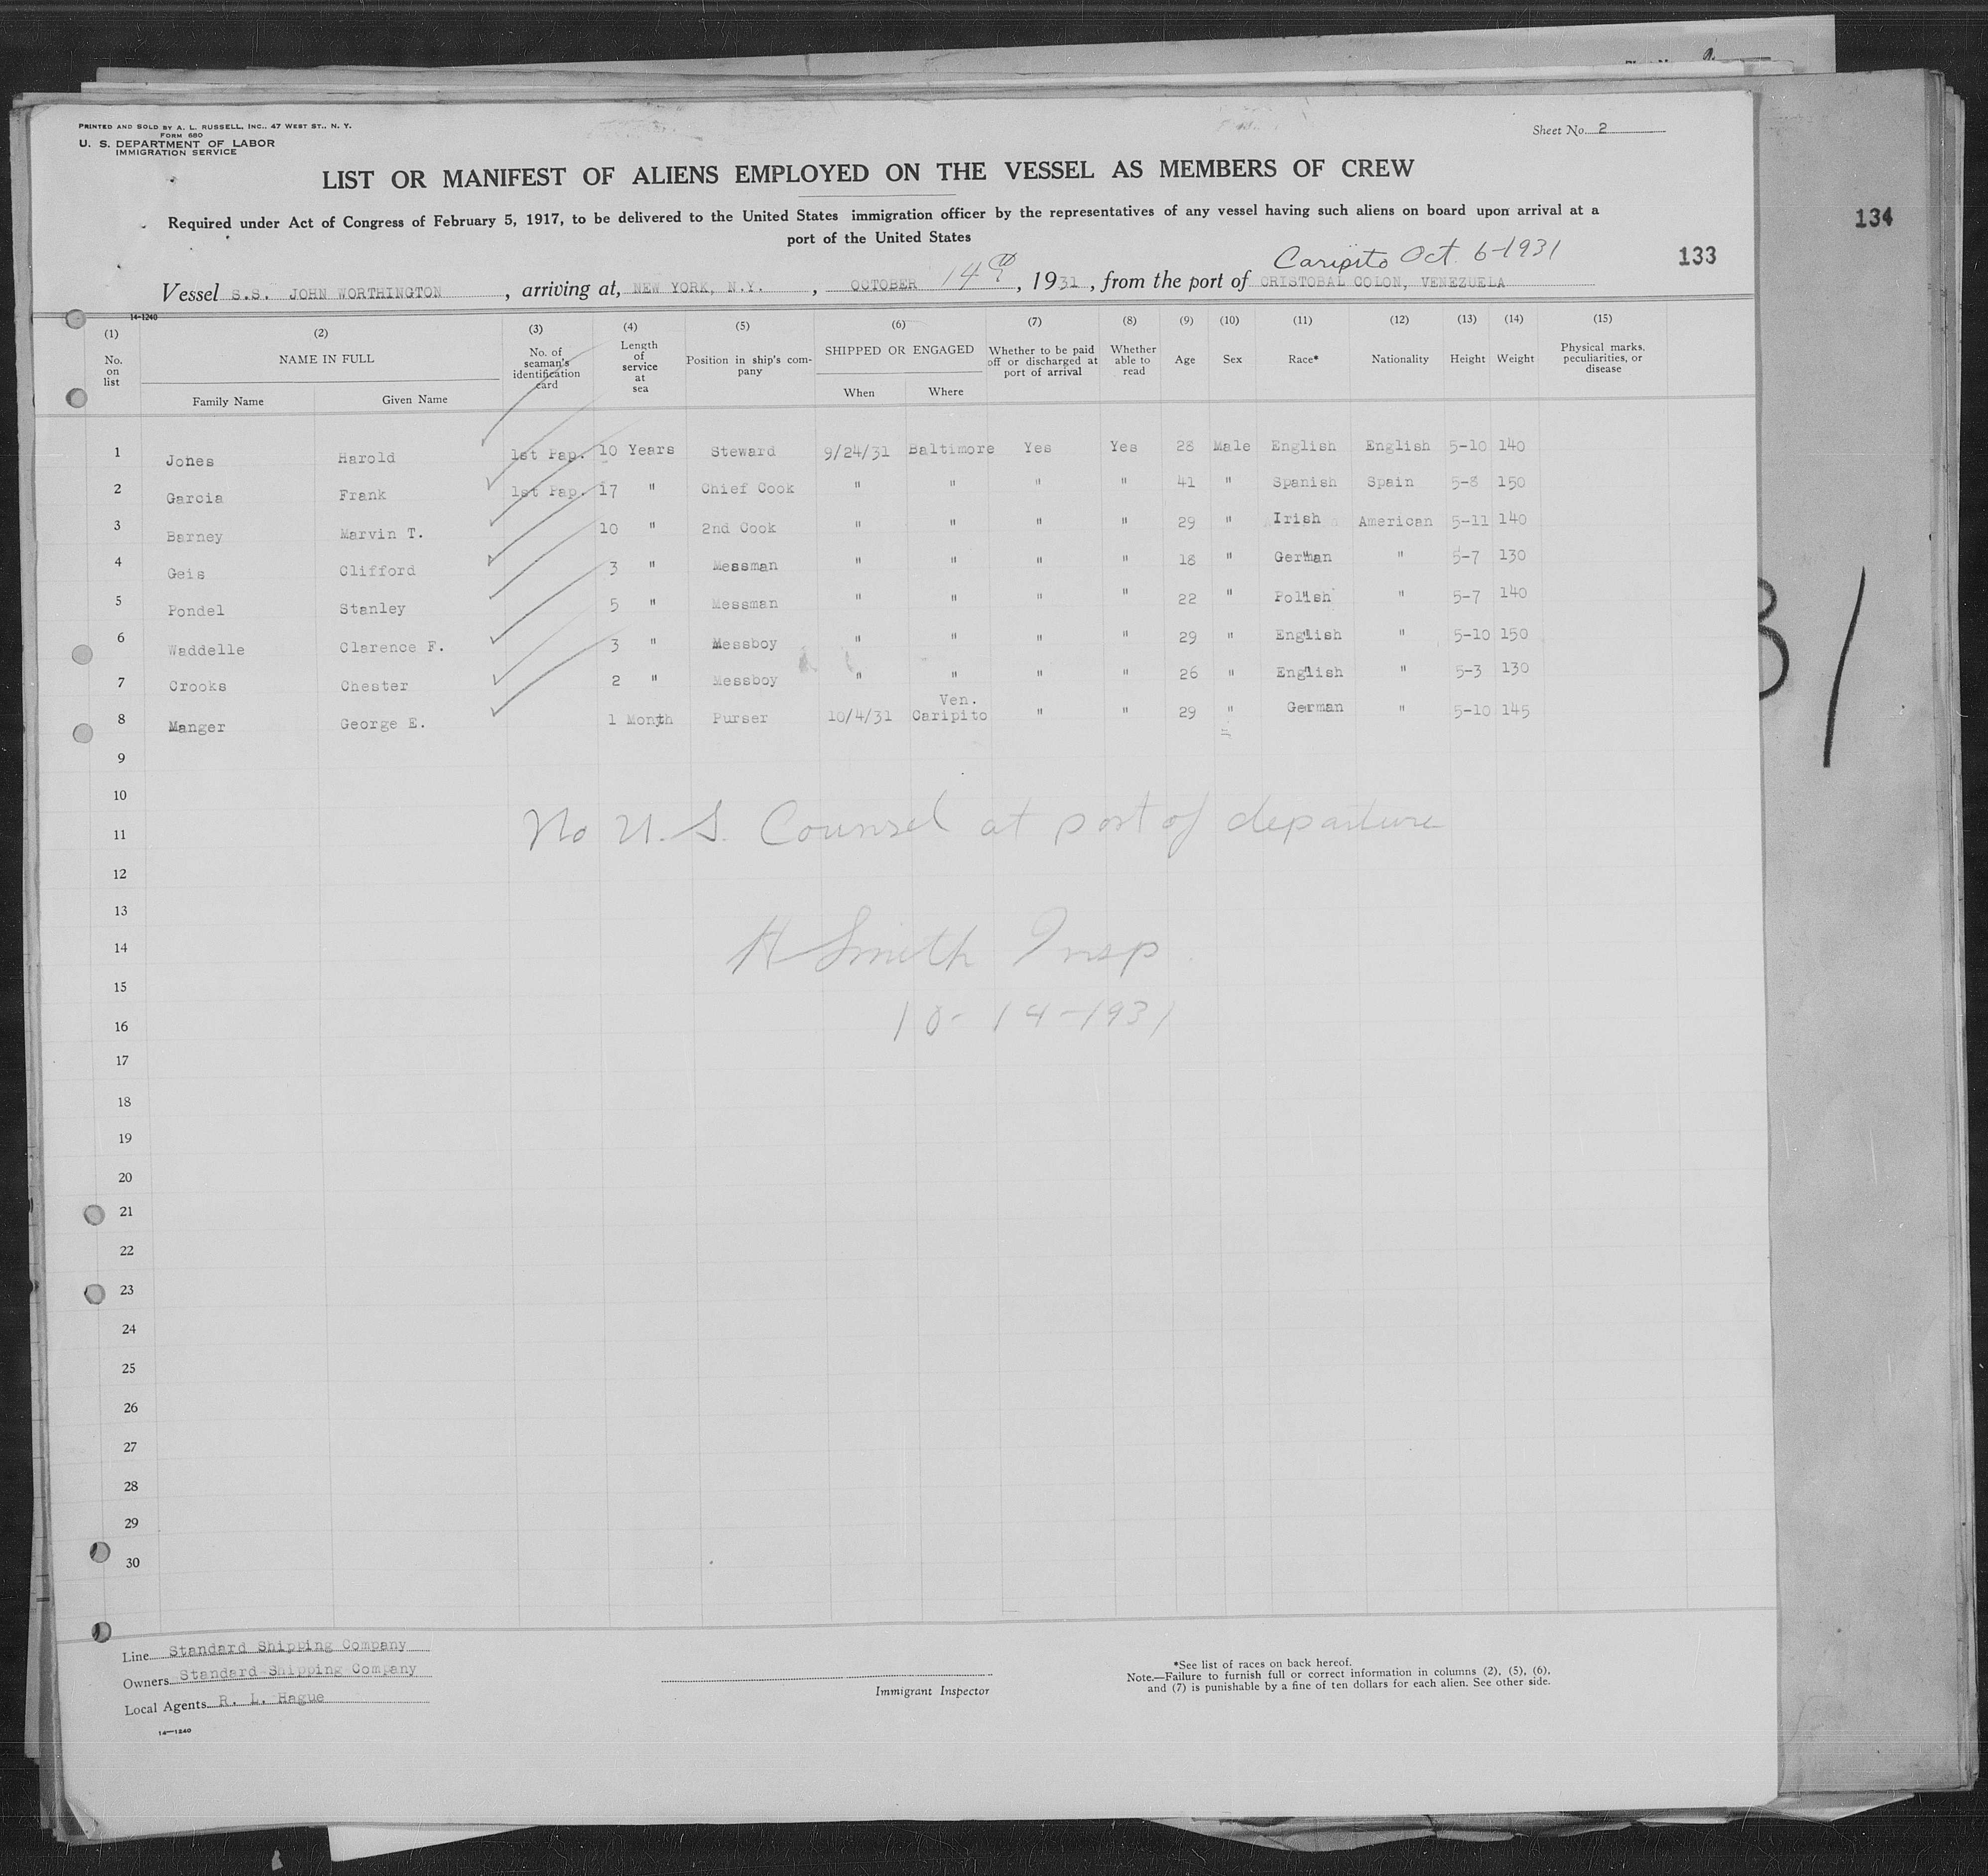 PRINTED AND SOLD BY A. L. RUSSELL, INC., 47 WEST ST., N. Y.
FORM 680
U. S. DEPARTMENT OF LABOR
IMMIGRATION SERVICE
Sheet No. 2
LIST OR MANIFEST OF ALIENS EMPLOYED ON THE VESSEL AS MEMBERS OF CREW
Required under Act of Congress of February 5, 1917, to be delivered to the United States immigration officer by the representatives of any vessel having such aliens on board upon arrival at a
port of the United States
134
133
Caripito Oct. 6-1931
Vessel S.S. JOHN WORTHINGTON, arriving at, NEW YORK, N.Y., OCTOBER 14th, 1931, from the port of CRISTOBAL COLON, VENEZUELA
14-1240
(1) (2) (3) (4) (5) (6) (7) (8) (9) (10) (11) (12) (13) (14) (15)
No. on list NAME IN FULL No. of seaman's identification card Length of service at sea Position in ship's company SHIPPED OR ENGAGED Whether to be paid off or discharged at port of arrival Whether able to read Age Sex Race* Nationality Height Weight Physical marks, peculiarities, or disease
Family Name Given Name When Where
1 Jones Harold 1st Pap. 10 Years Steward 9/24/31 Baltimore Yes Yes 28 Male English English 5-10 140
2 Garcia Frank 1st Pap. 17 " Chief Cook " " " " 41 " Spanish Spain 5-8 150
3 Barney Marvin T. 10 " 2nd Cook " " " " 29 " Irish American 5-11 140
4 Geis Clifford 3 " Messman " " " " 18 " German " 5-7 130
5 Pondel Stanley 5 " Messman " " " " 22 " Polish " 5-7 140
6 Waddelle Clarence F. 3 " Messboy " " " " 29 " English " 5-10 150
7 Crooks Chester 2 " Messboy " " " " 26 " English " 5-3 130
8 Manger George E. 1 Month Purser 10/4/31 Ven. Caripito " " 29 " German " 5-10 145
9
10
11
No U.S. Counsel at port of departure
12
13
14
H Smith Insp
15
16
10-14-1931
17
18
19
20
21
22
23
24
25
26
27
28
29
30
Line Standard Shipping Company
Owners Standard Shipping Company
Local Agents R. L. Hague
14-1240
Immigrant Inspector
*See list of races on back hereof.
Note.—Failure to furnish full or correct information in columns (2), (5), (6),
and (7) is punishable by a fine of ten dollars for each alien. See other side.